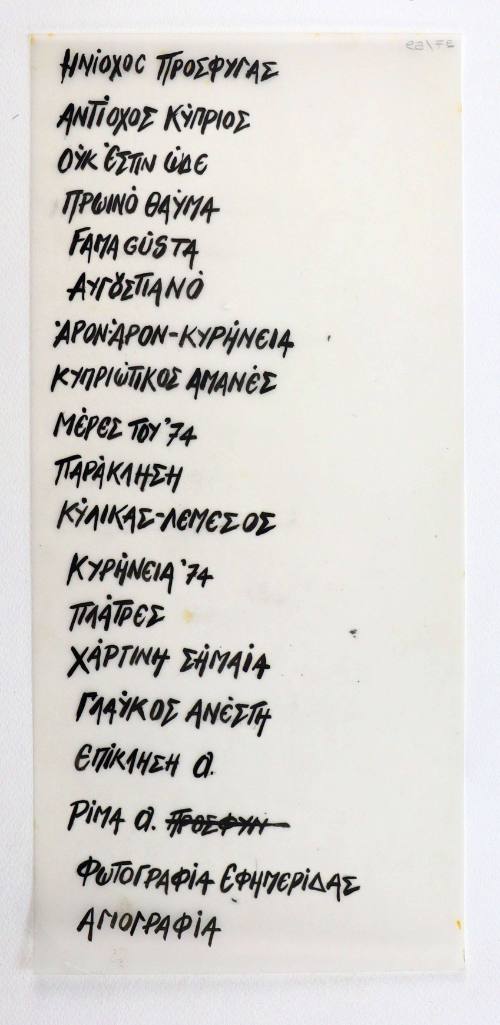 ΗΝΊΟΧΟС ΠΡΟΣΦΥΓΑΣ
ΑΝΤΊΟΧΟΣ ΚΎΠΡΙΟΣ
ΟΎΚ ἜΣΤΙΝ ὯΔΕ
ΠΡΩΙΝΌ ΘΑΎΜΑ
FAMAGÚSTA
ΑΥΓȢΣΤΙΑΝΌ
ἈΡΟΝ-ἈΡΟΝ-ΚΥΡΉΝΕΙΑ
ΚΥΠΡΙΏΤΙΚΟΣ ΑΜΑΝΈΣ
ΜΈΡΕΣ ΤΟΥ '74
ΠΑΡΆΚΛΗΣΗ
ΚΎΛΙΚΑΣ-ΛΕΜΕΣΟΣ
ΚΥΡΉΝΕΙΑ '74
ΠΛΆΤΡΕΣ
ΧΆΡΤΙΝΗ ΣΗΜΑΊΑ
ΓΛΑΎΚΟΣ ΑΝΈΣΤΗ
ΕΠΊΚΛΗΣΗ α.
ΡΊΜΑ α. ΠΡΟΣΦΥΝ
ΦΩΤΟΓΡΑΦΊΑ ΕΦΗΜΕΡΊΔΑΣ
ΑΓΙΟΓΡΑΦΊΑ